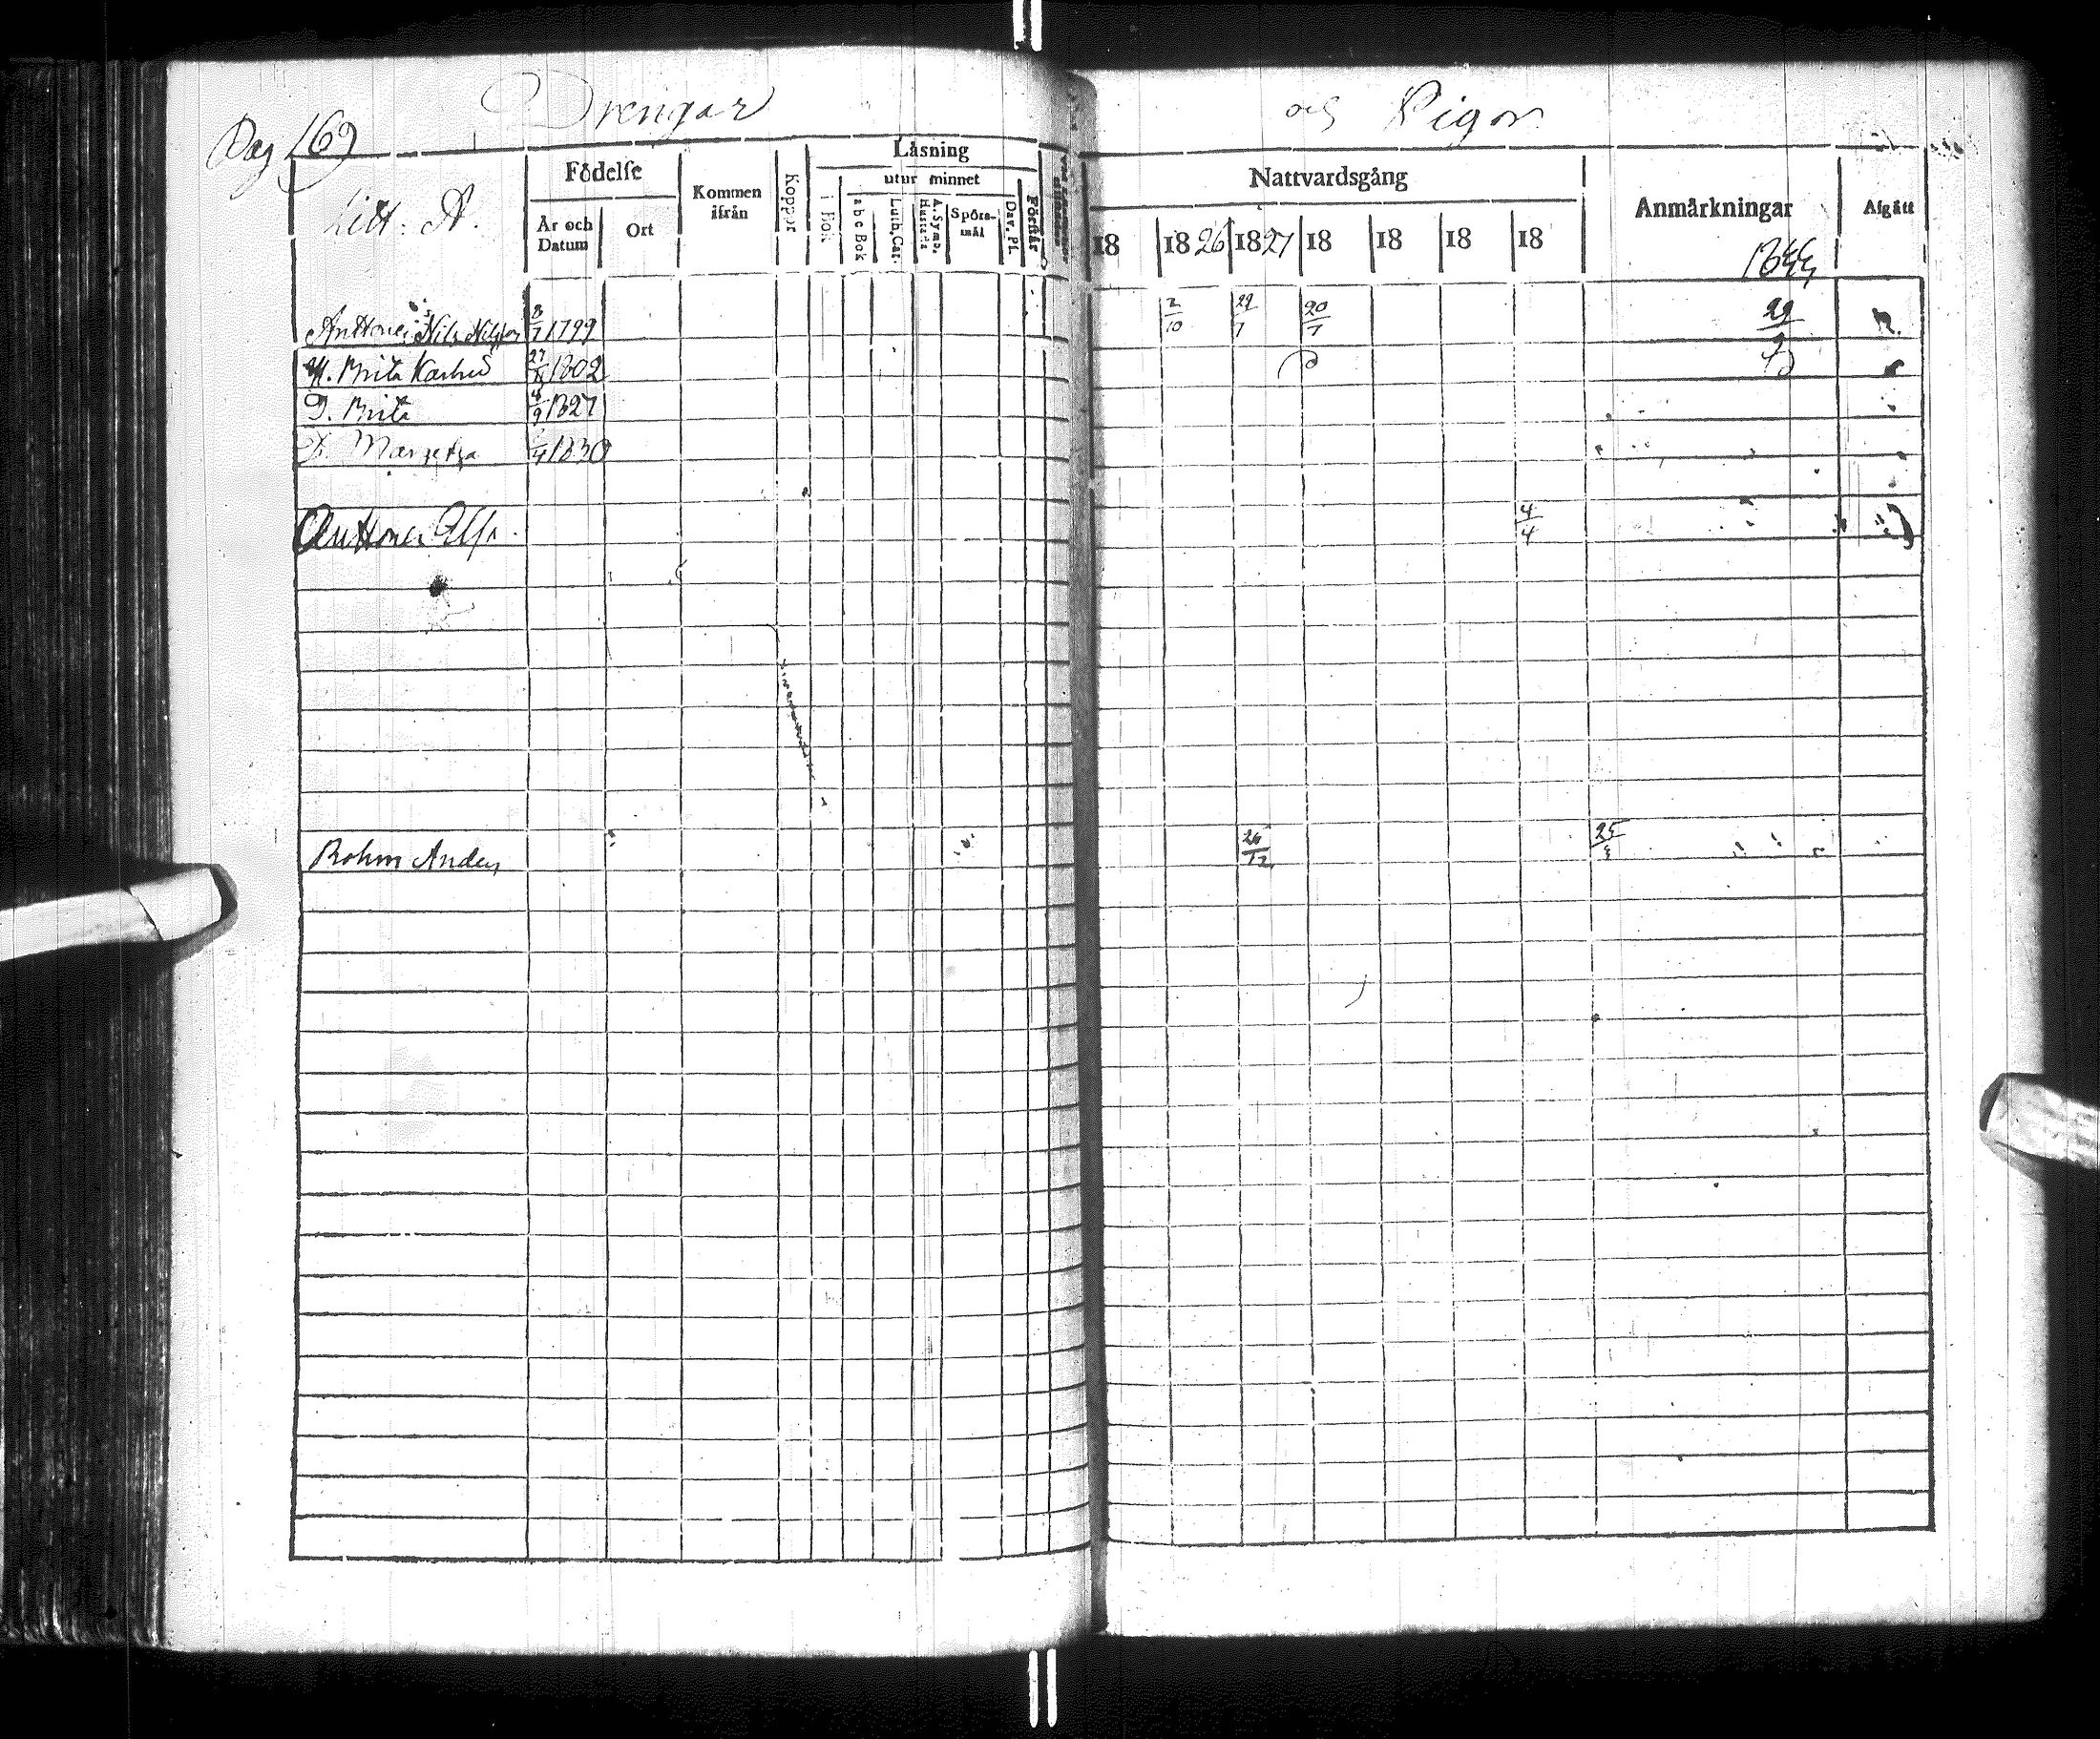 Pag 169
Drengar och Pigor
Litt. A.
Födelse
År och Datum
Ort
Kommen ifrån
Koppor
Läsning
utur minnet
i Bok
a b c Bok
Luth. Cat.
A. Symb. Hustafla
Spörs-mål
Dav. Ps.
Förstår
Nattvardsgång
18 1826 1827 18 18 18 18
Anmärkningar
Afgått
Nils Nilsson 8/7 1799 2/10 29/7 20/7 29
H. Brita 1802
D. Brita 4/9 1827
D. Margeta /4 1830
4/4
Bohm Anders 26/12 25